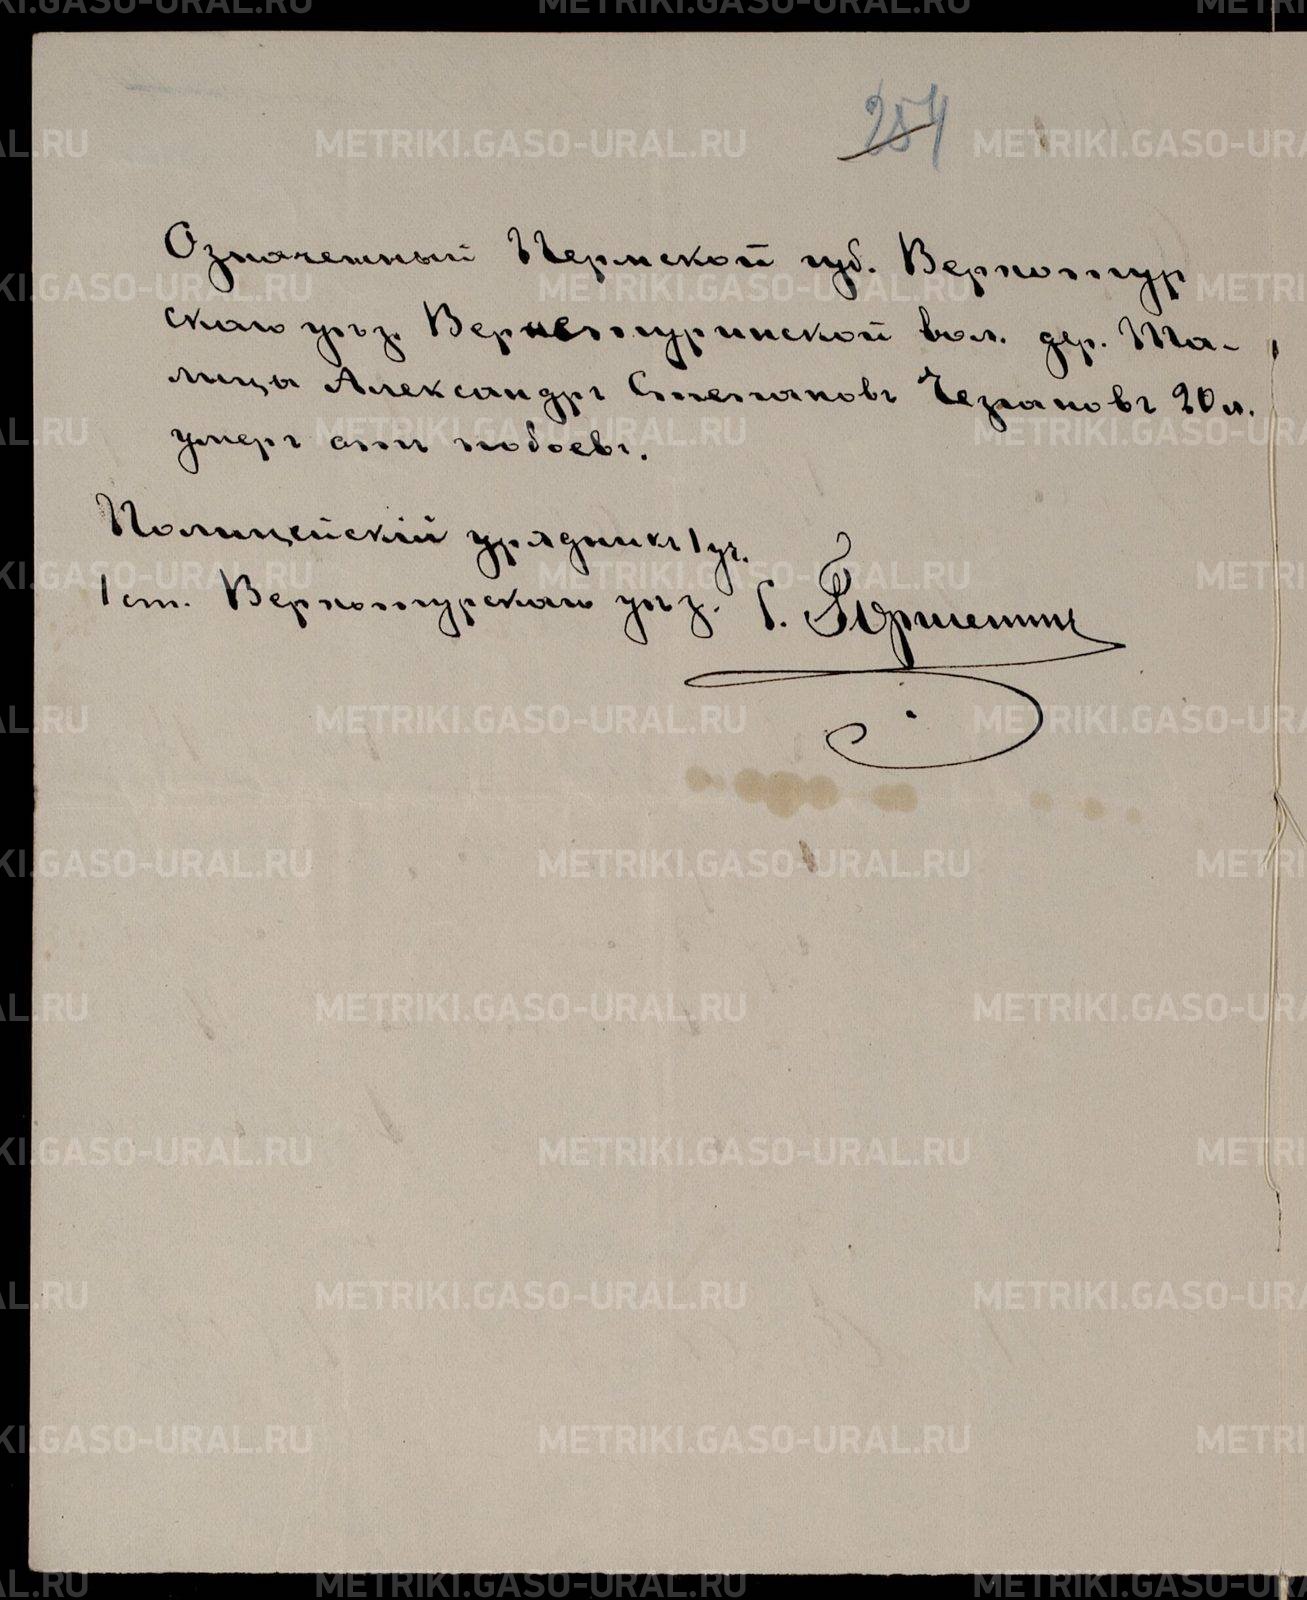 254
Означенный Пермской губ. Верхотур
скаго уѣз. Верхотуринской вол. дер. Та-
лица Александръ Степановъ Чезгановъ 20 л.
умеръ отъ побоевъ.
Полицейскій урядникъ 1 уч.
1 ст. Верхотурскаго уѣз.
METRIKI.GASO-URAL.RU